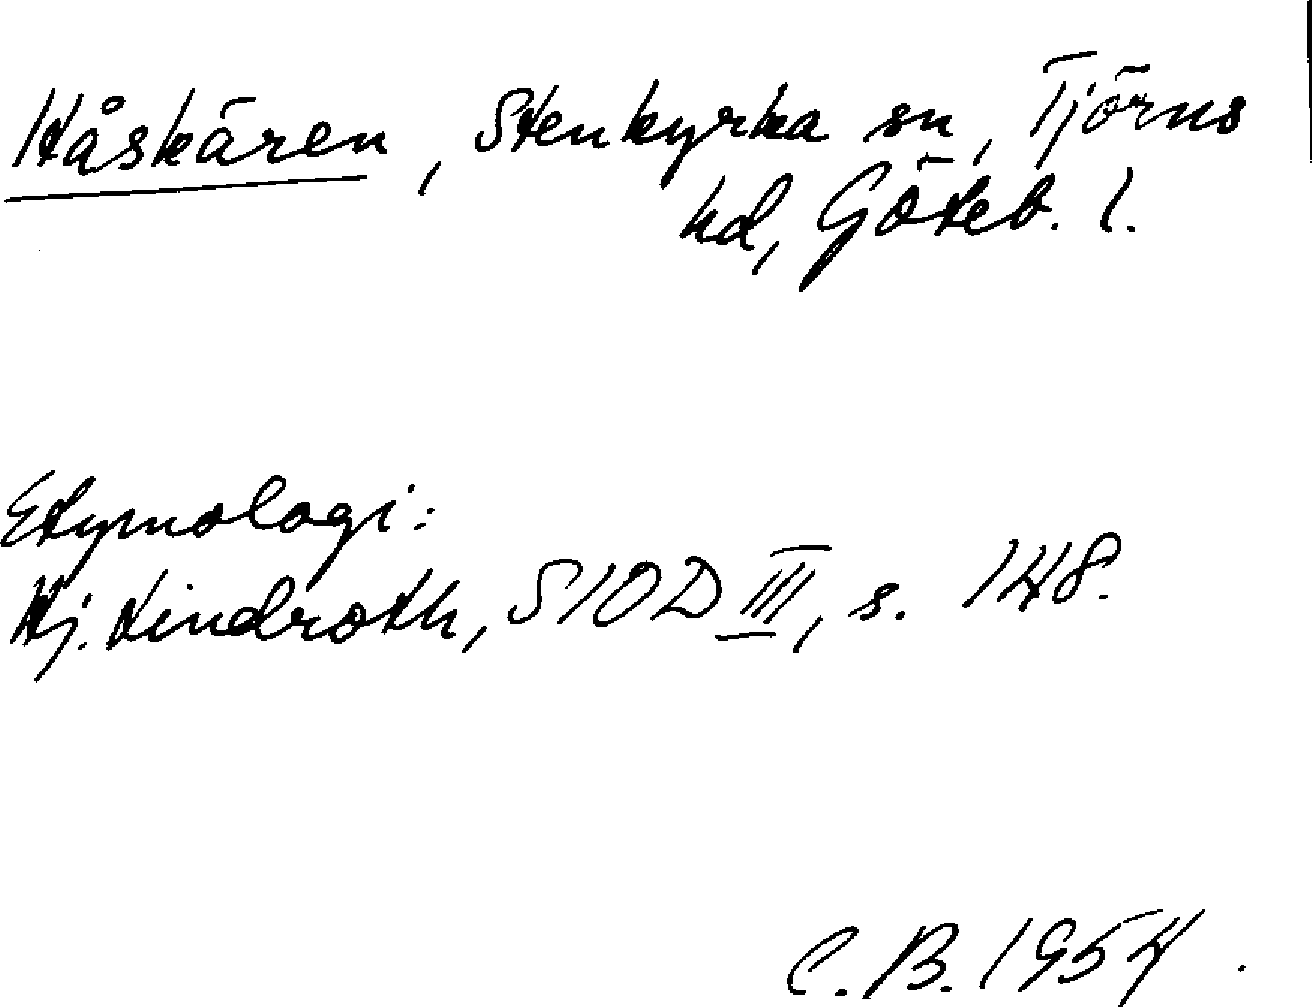 Håskären, Stenkyrka sn, Tjörns
hd, Göteb. l.
Etymologi:
Hj. Lindroth, SIOD III, s. 148.
C. B. 1954.